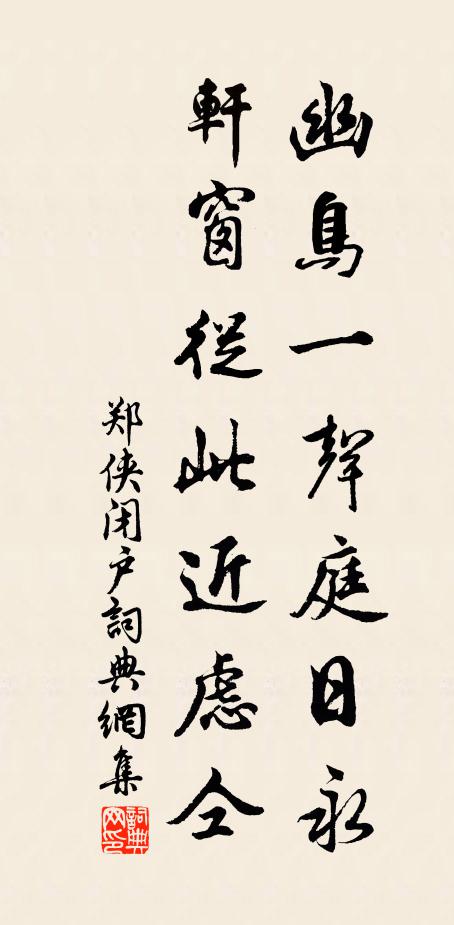 幽鳥一聲庭日永
軒窗從此近虑仝
郑侠闭户詞典網集
詞典网印